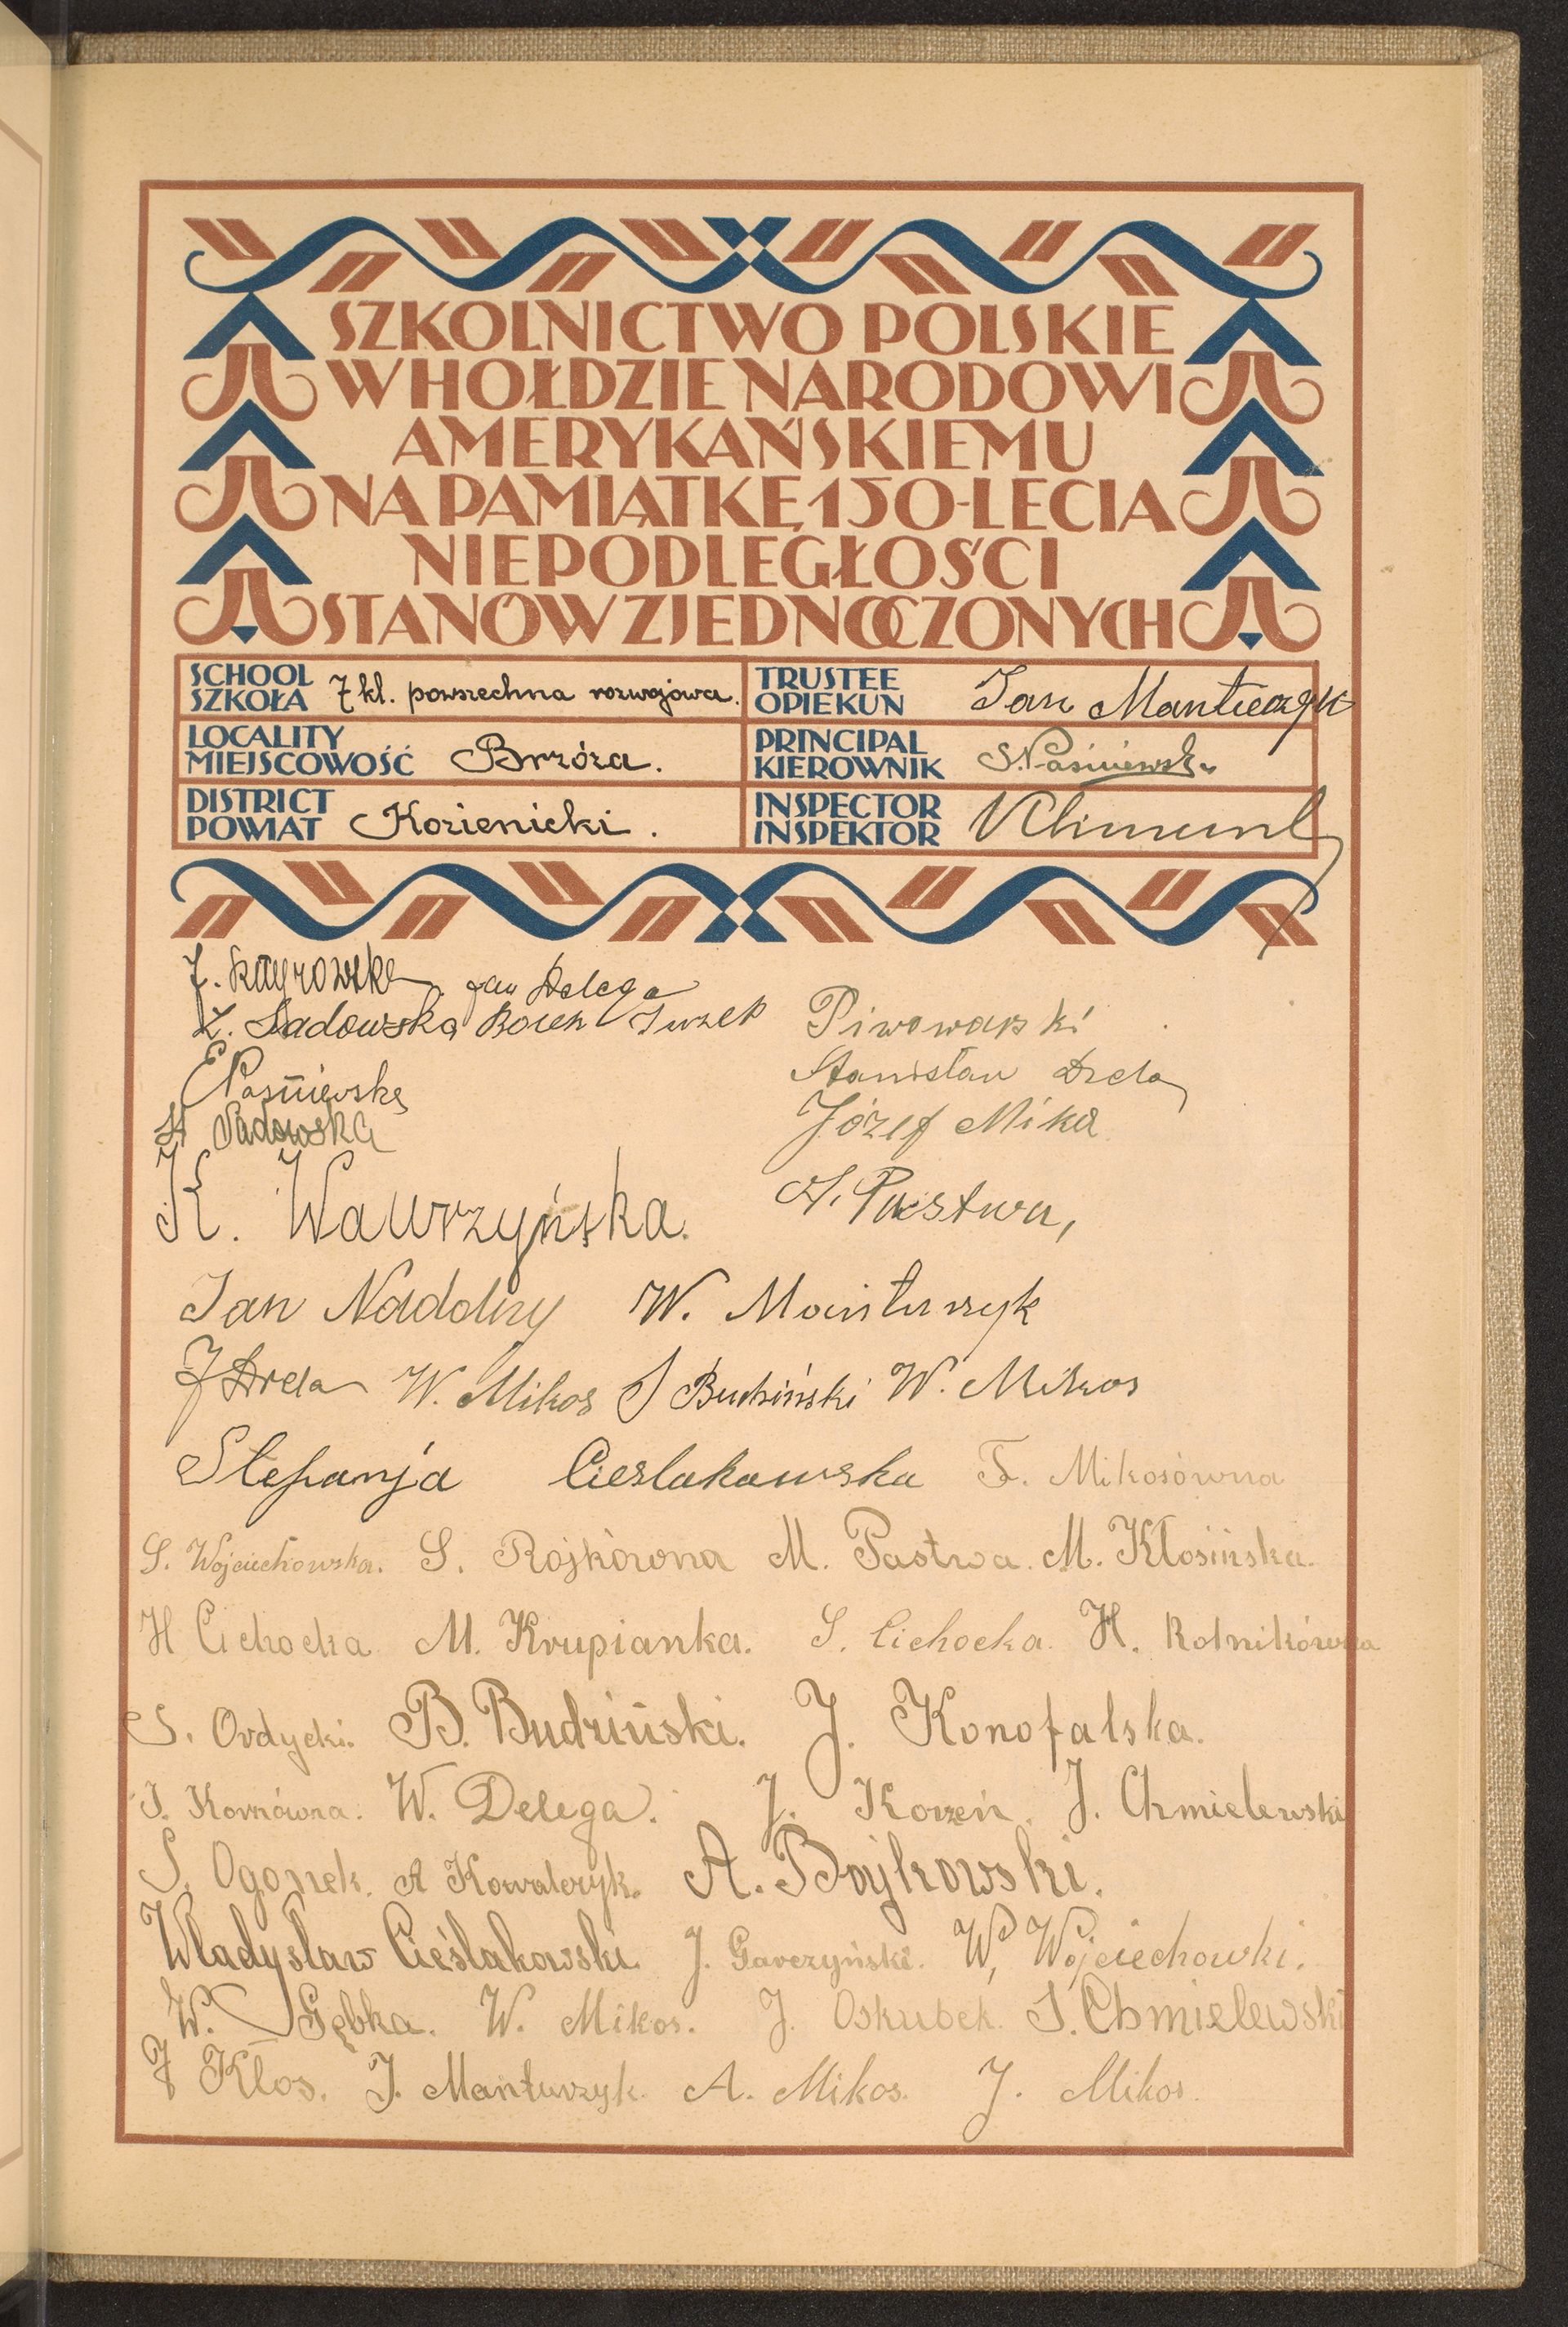 SZKOLNICTWO POLSKIE
W HOŁDZIE NARODOWI
AMERYKAŃSKIEMU
NA PAMIĄTKĘ 150-LECIA
NIEPODLEGŁOŚCI
STANÓW ZJEDNOCZONYCH
SCHOOL SZKOŁA 7 kl. powszechna rozwojowa.
TRUSTEE OPIEKUN Jan
LOCALITY MIEJSCOWOŚĆ Brzóza.
PRINCIPAL KIEROWNIK S. Paśniewski
DISTRICT POWIAT Kozienicki.
INSPECTOR INSPEKTOR
Jan Delega
Z. Sadowska Piwowarski
E Paśniewska Stanisław Drela
St Sadowska Józef Mika
K. Wawrzyńska. A. Pastwa,
Jan Nadolny W. Mańturzyk
J Drela W. Mikos J Budziński W. Mikos
Stefanja Cieslakowska F. Mikosówna
S. Wojciechowska. S. Rojkówna M. Pastwa. M. Kłosińska.
H Cichocka M. Krupianka. S. Cichocka. H. Rotnikówna
S. Ordycki. B. Budziński. J. Konofalska.
J. Korzeń. J. Chmielewski
W. Delega.
S. Ogonek. A Kowalczyk. A. Bojkowski.
Władysław Cieślakowski. J. Garczyński. W, Wojciechowki.
W. Gębka. W. Mikos. J. Oskubek. J. Chmielewski
F Kłos. J. Mańturzyk. A. Mikos. J. Mikos.